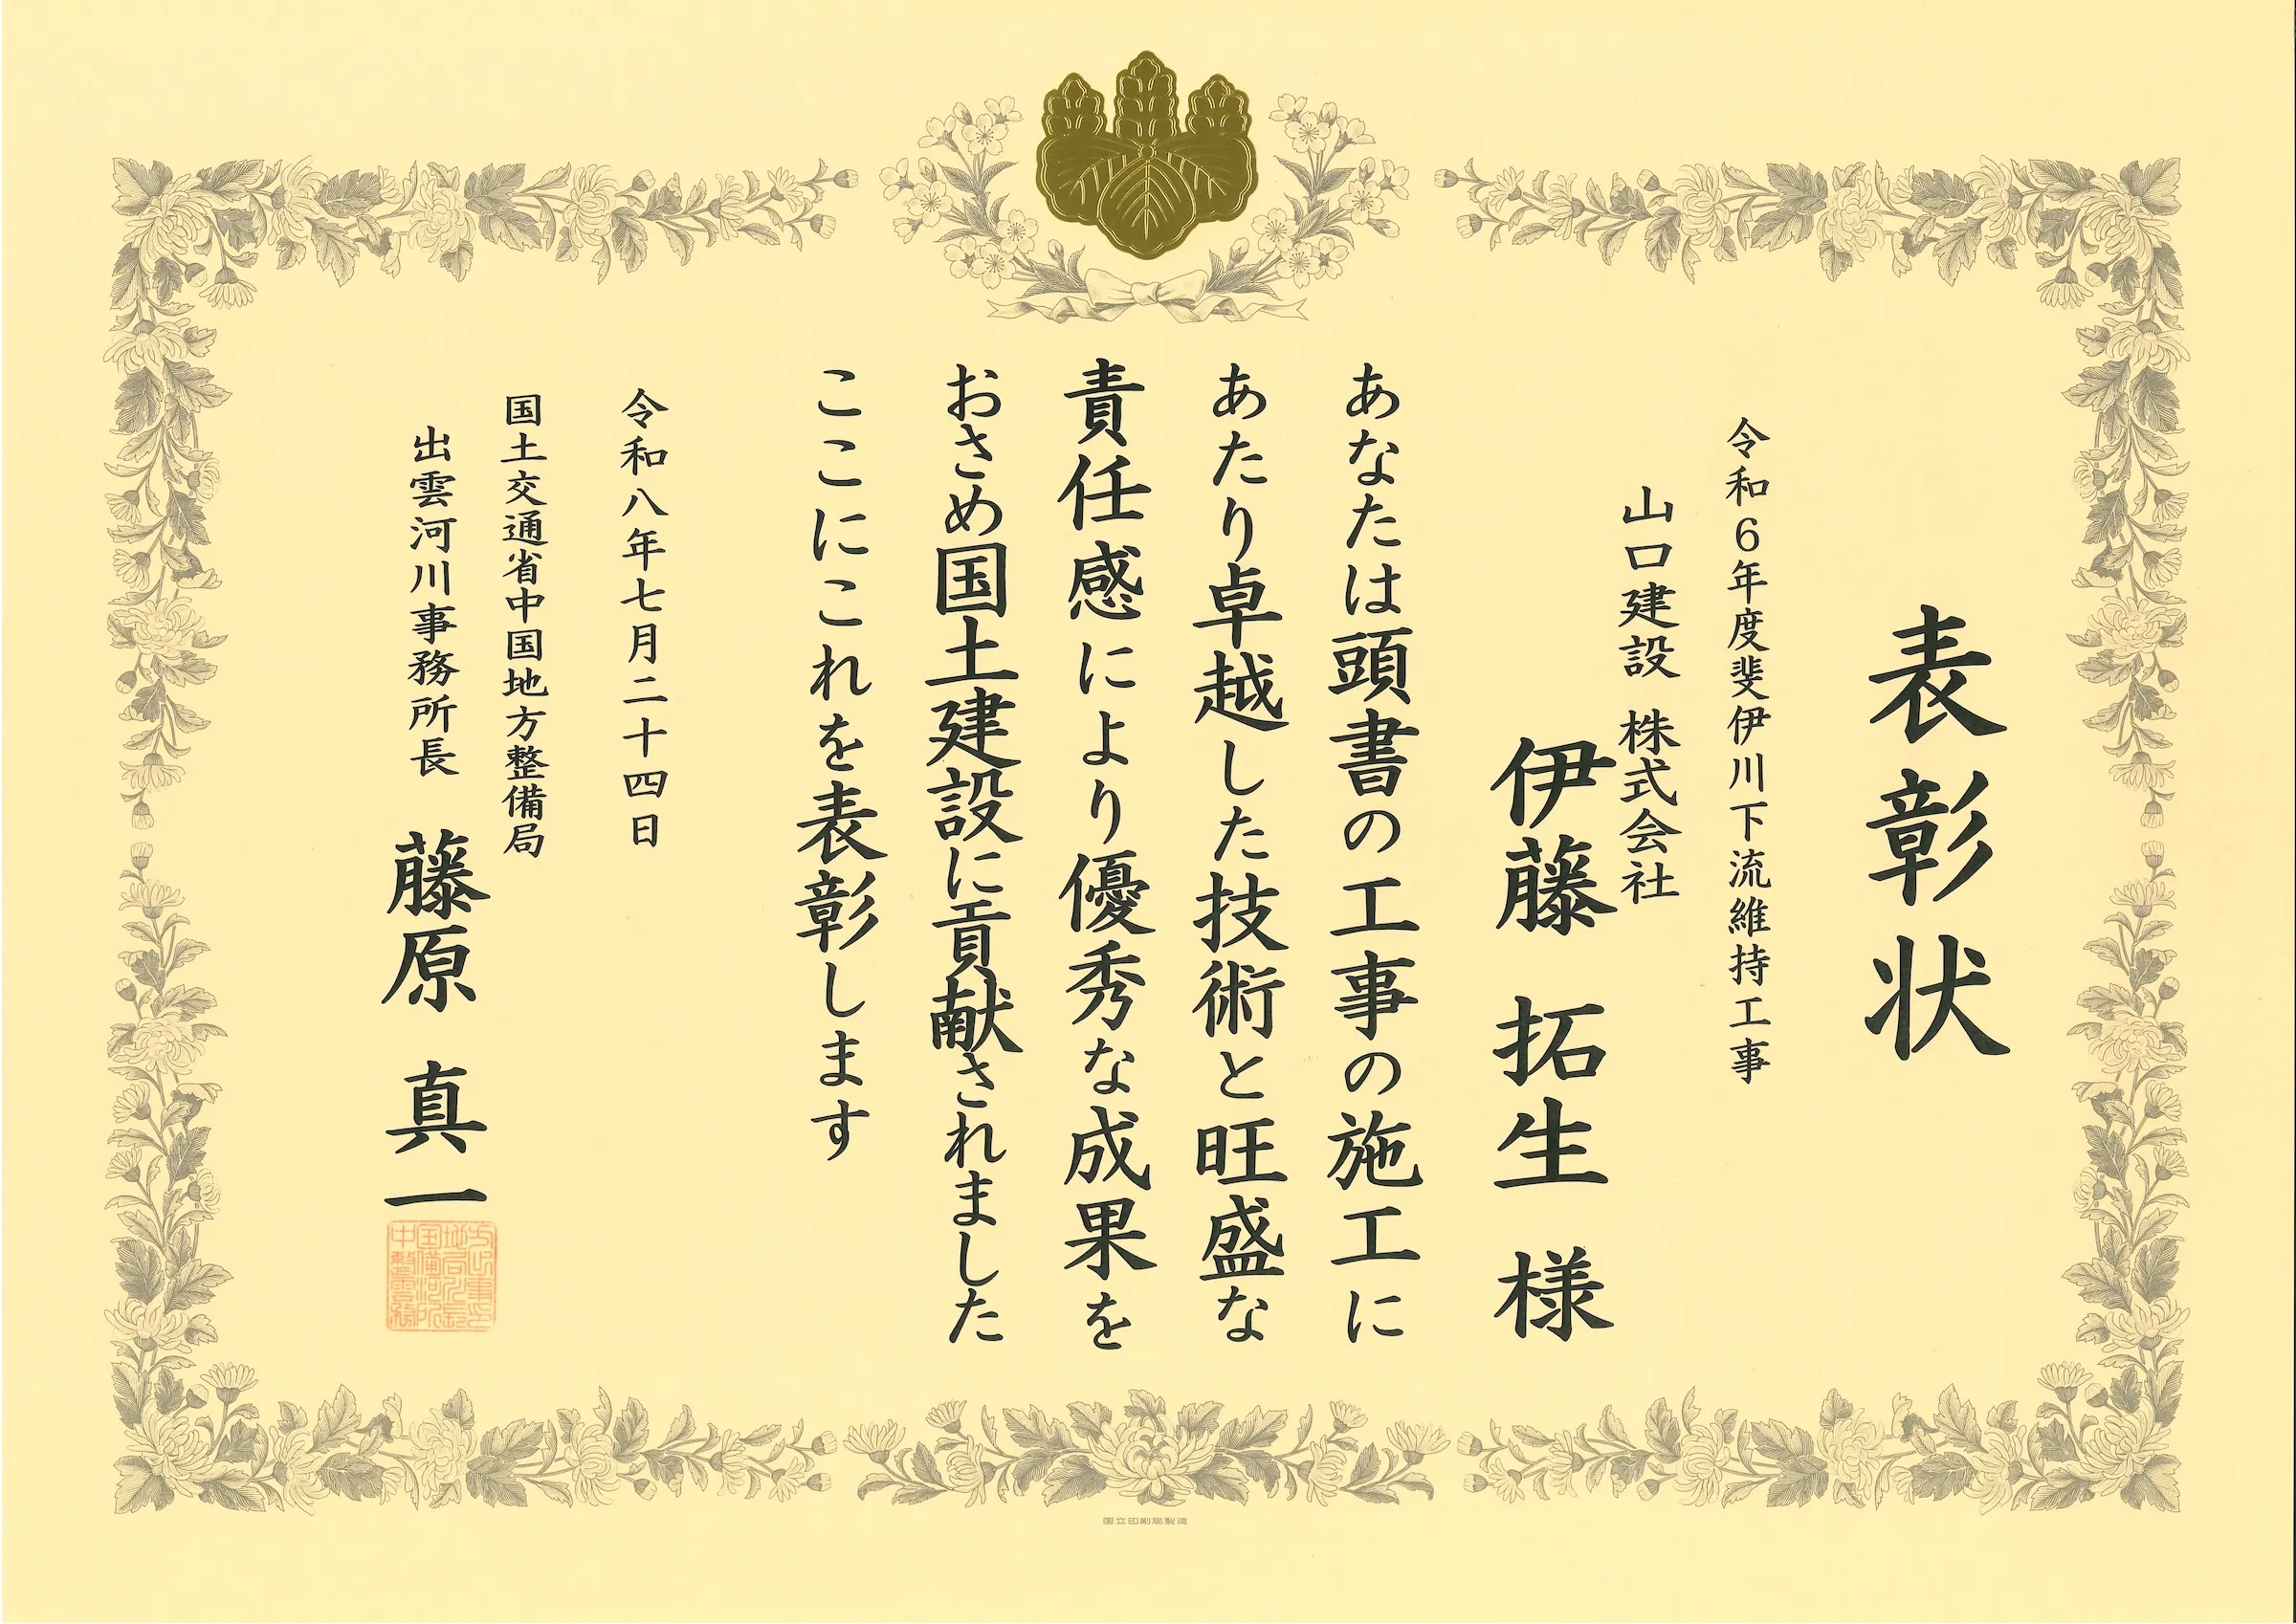 表彰状
令和6年度斐伊川下流維持工事
山口建設 株式会社
伊藤 拓生 様
あなたは頭書の工事の施工に
あたり卓越した技術と旺盛な
責任感により優秀な成果を
おさめ国土建設に貢献されました
ここにこれを表彰します
令和八年七月二十四日
国土交通省中国地方整備局
出雲河川事務所長 藤原 真一
国立印刷局製造